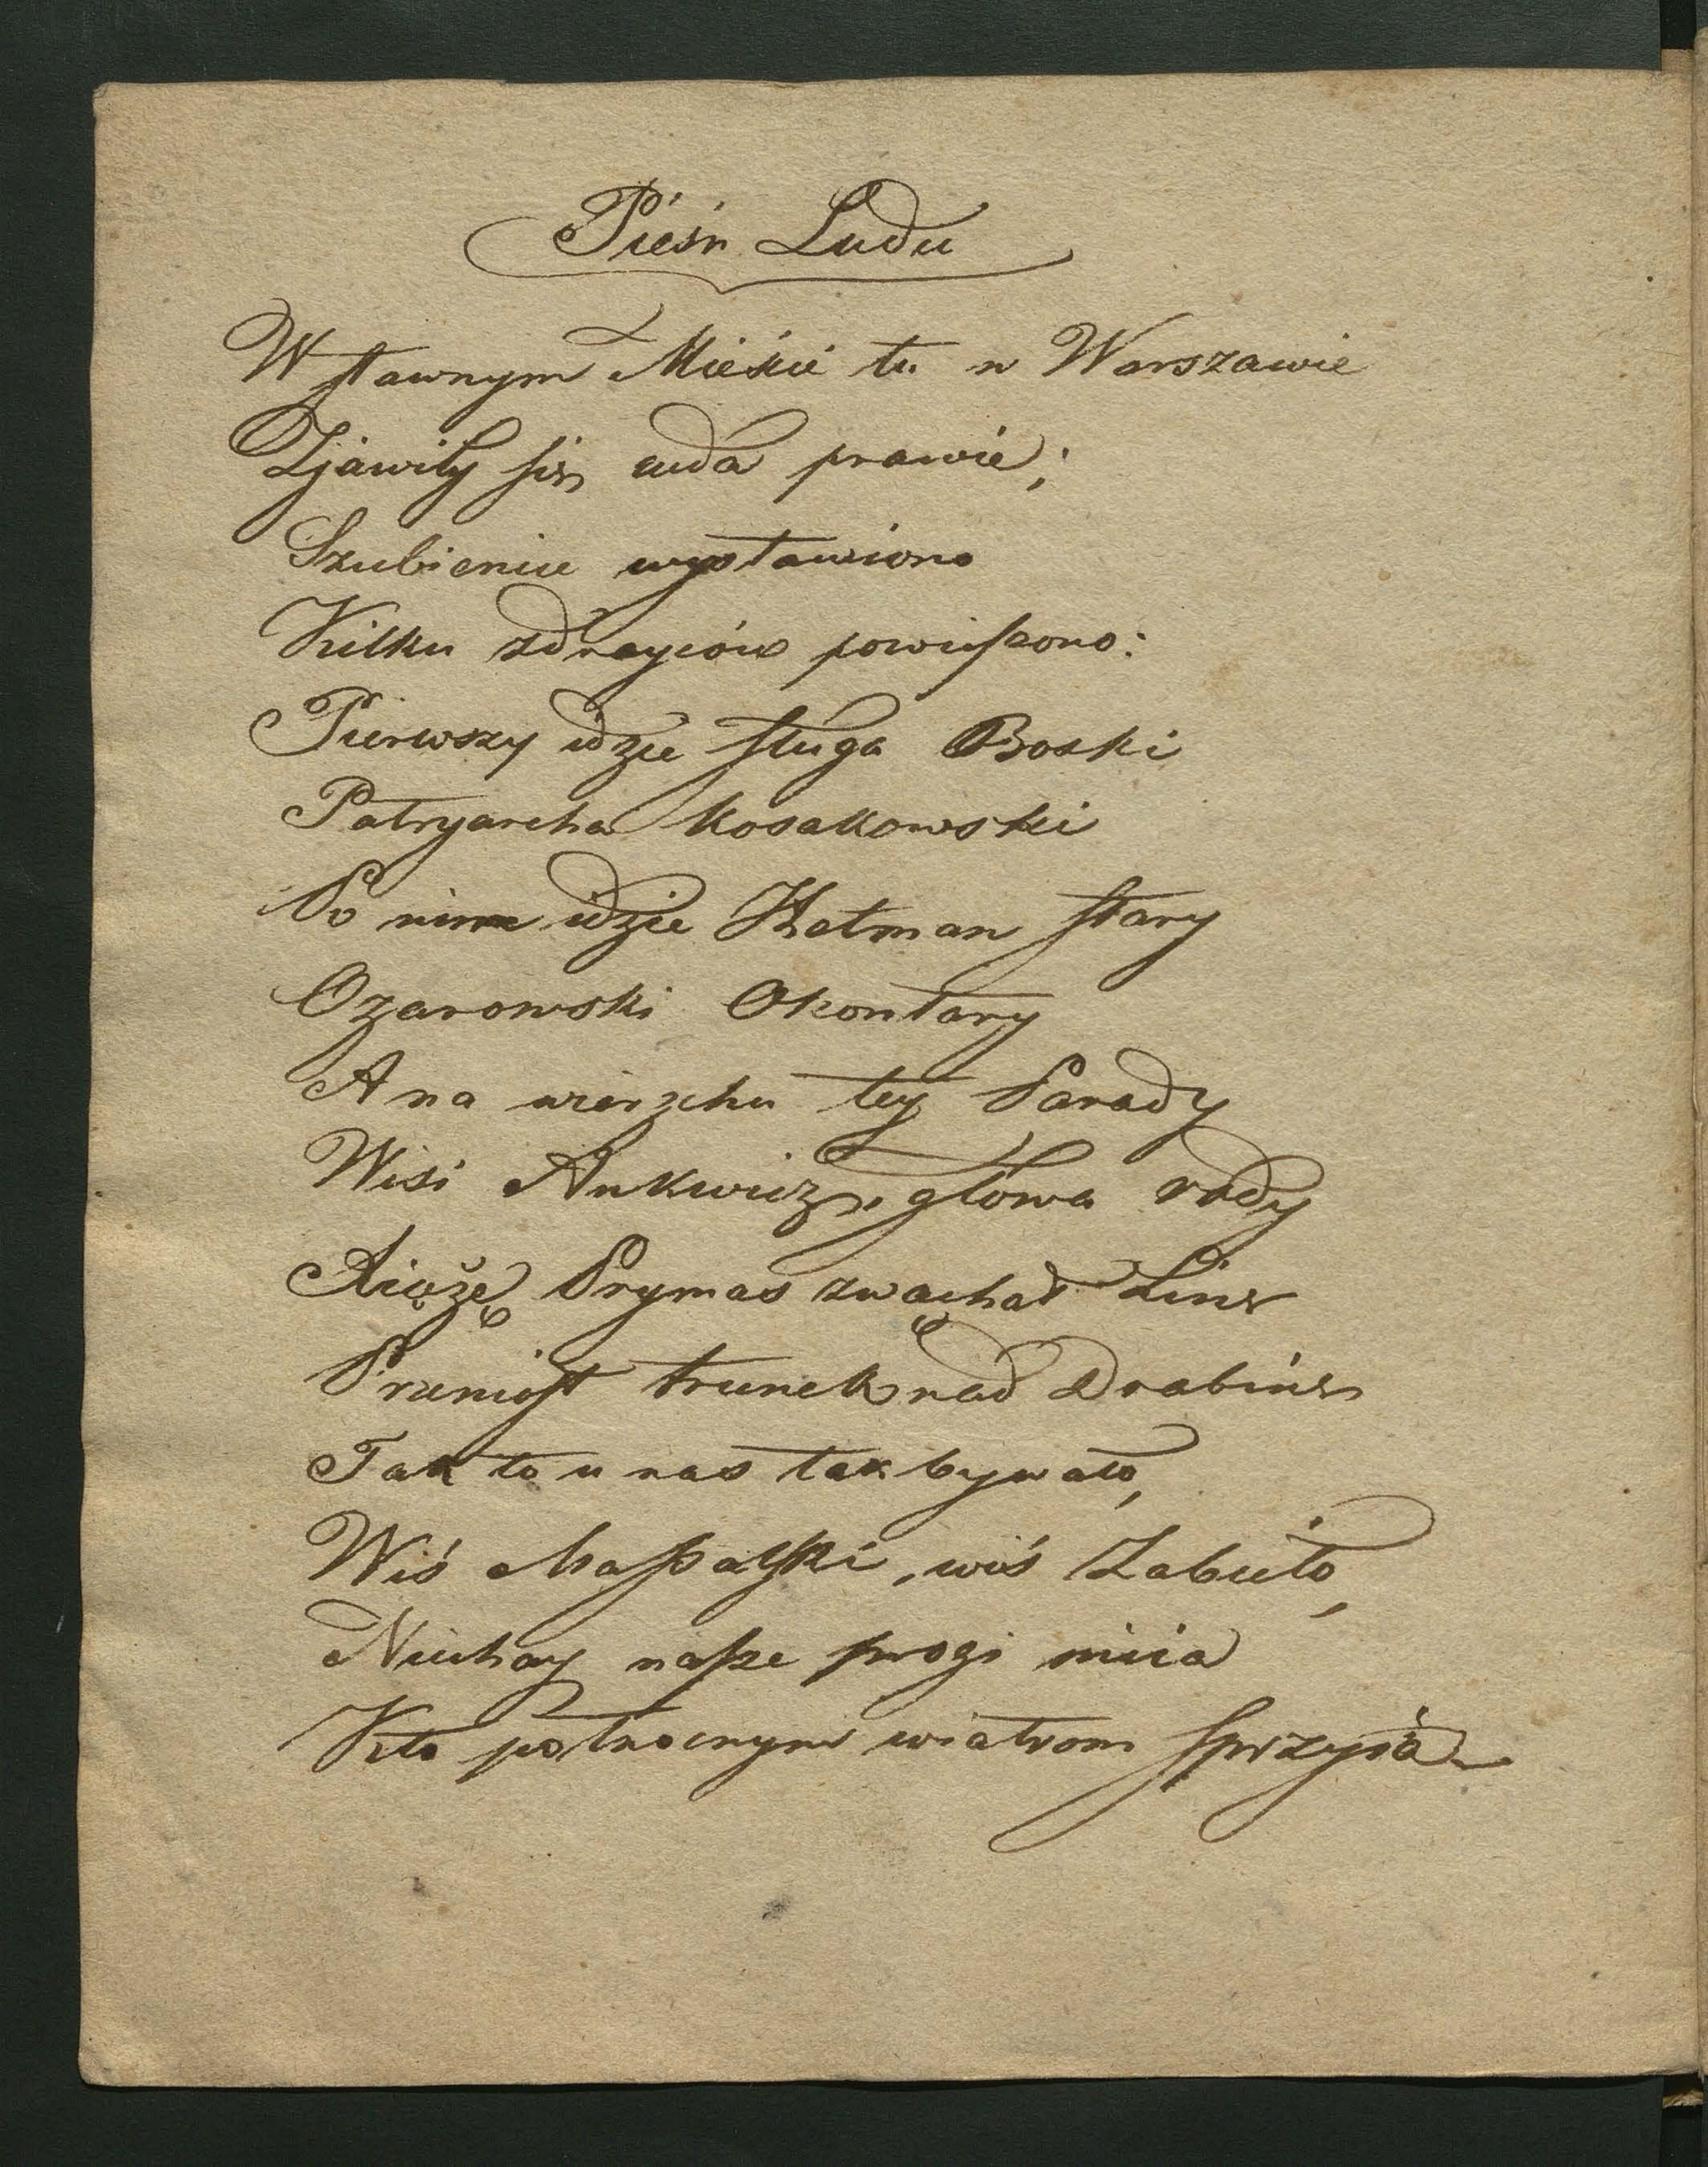 Pieśń Ludu
W sławnym Mieście tu w Warszawie
Zjawiły się cuda prawie;
Szubienice wystawiono
Kilku zdraycow powieszono:
Pierwszy idzie sługa Boski
Patryarcha Kosakowski
Po nim idzie Hetman stary
Ożarowski Okontary
A na wierzchu tey Parady
Wisi Ankwicz, głowa rady
Xiąże Prymas zwąchał Linę
Przeniósł trunek nad Drabinę
Tak to u nas tak bywało,
Wiś Massalski, wiś Zabiełło,
Niechay nasze progi miia
Kto północnym wiatrom sprzyia